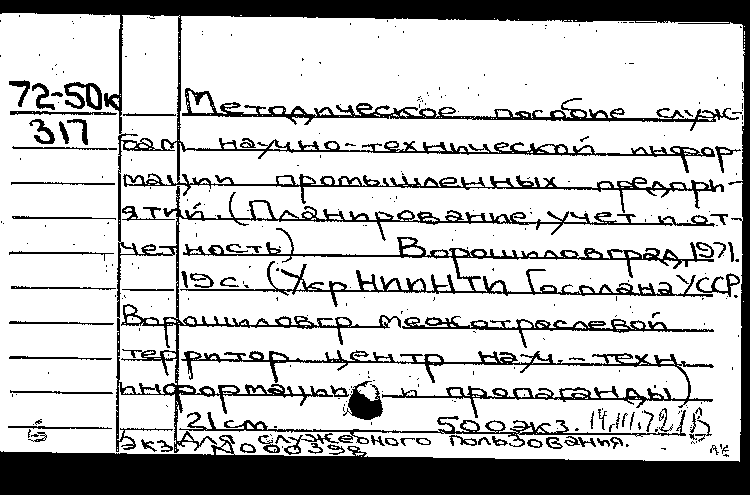 72-50к
317
Методическое пособие служ-
бам научно-технической инфор-
мации промышленных предпри-
ятий. (Планирование, учет и от-
четность) Ворошиловград, 1971.
19 с. (УкрНИИНТИ Госплана УССР.
Ворошиловгр. межотраслевой
территор. центр науч.-техн.
информации и пропаганды)
21 см. 500 экз. 14.III.72 1В
б Для служебного пользования.
Экз. №000398